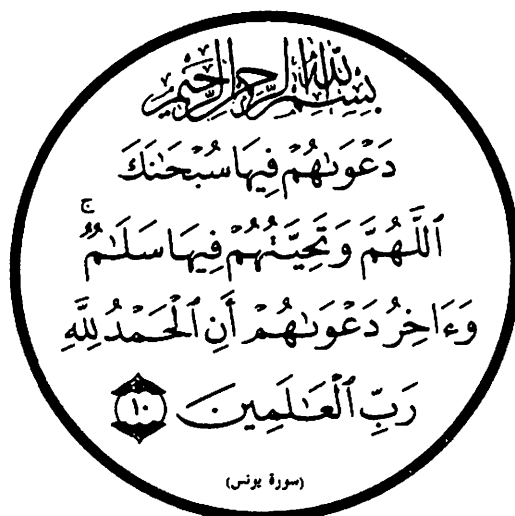 بِسْمِ اللَّهِ الرَّحْمَٰنِ الرَّحِيمِ
دَعْوَىٰهُمْ فِيهَا سُبْحَٰنَكَ
ٱللَّهُمَّ وَتَحِيَّتُهُمْ فِيهَا سَلَٰمٌ ۚ
وَءَاخِرُ دَعْوَىٰهُمْ أَنِ ٱلْحَمْدُ لِلَّهِ
رَبِّ ٱلْعَٰلَمِينَ ١٠
(سورة يونس)